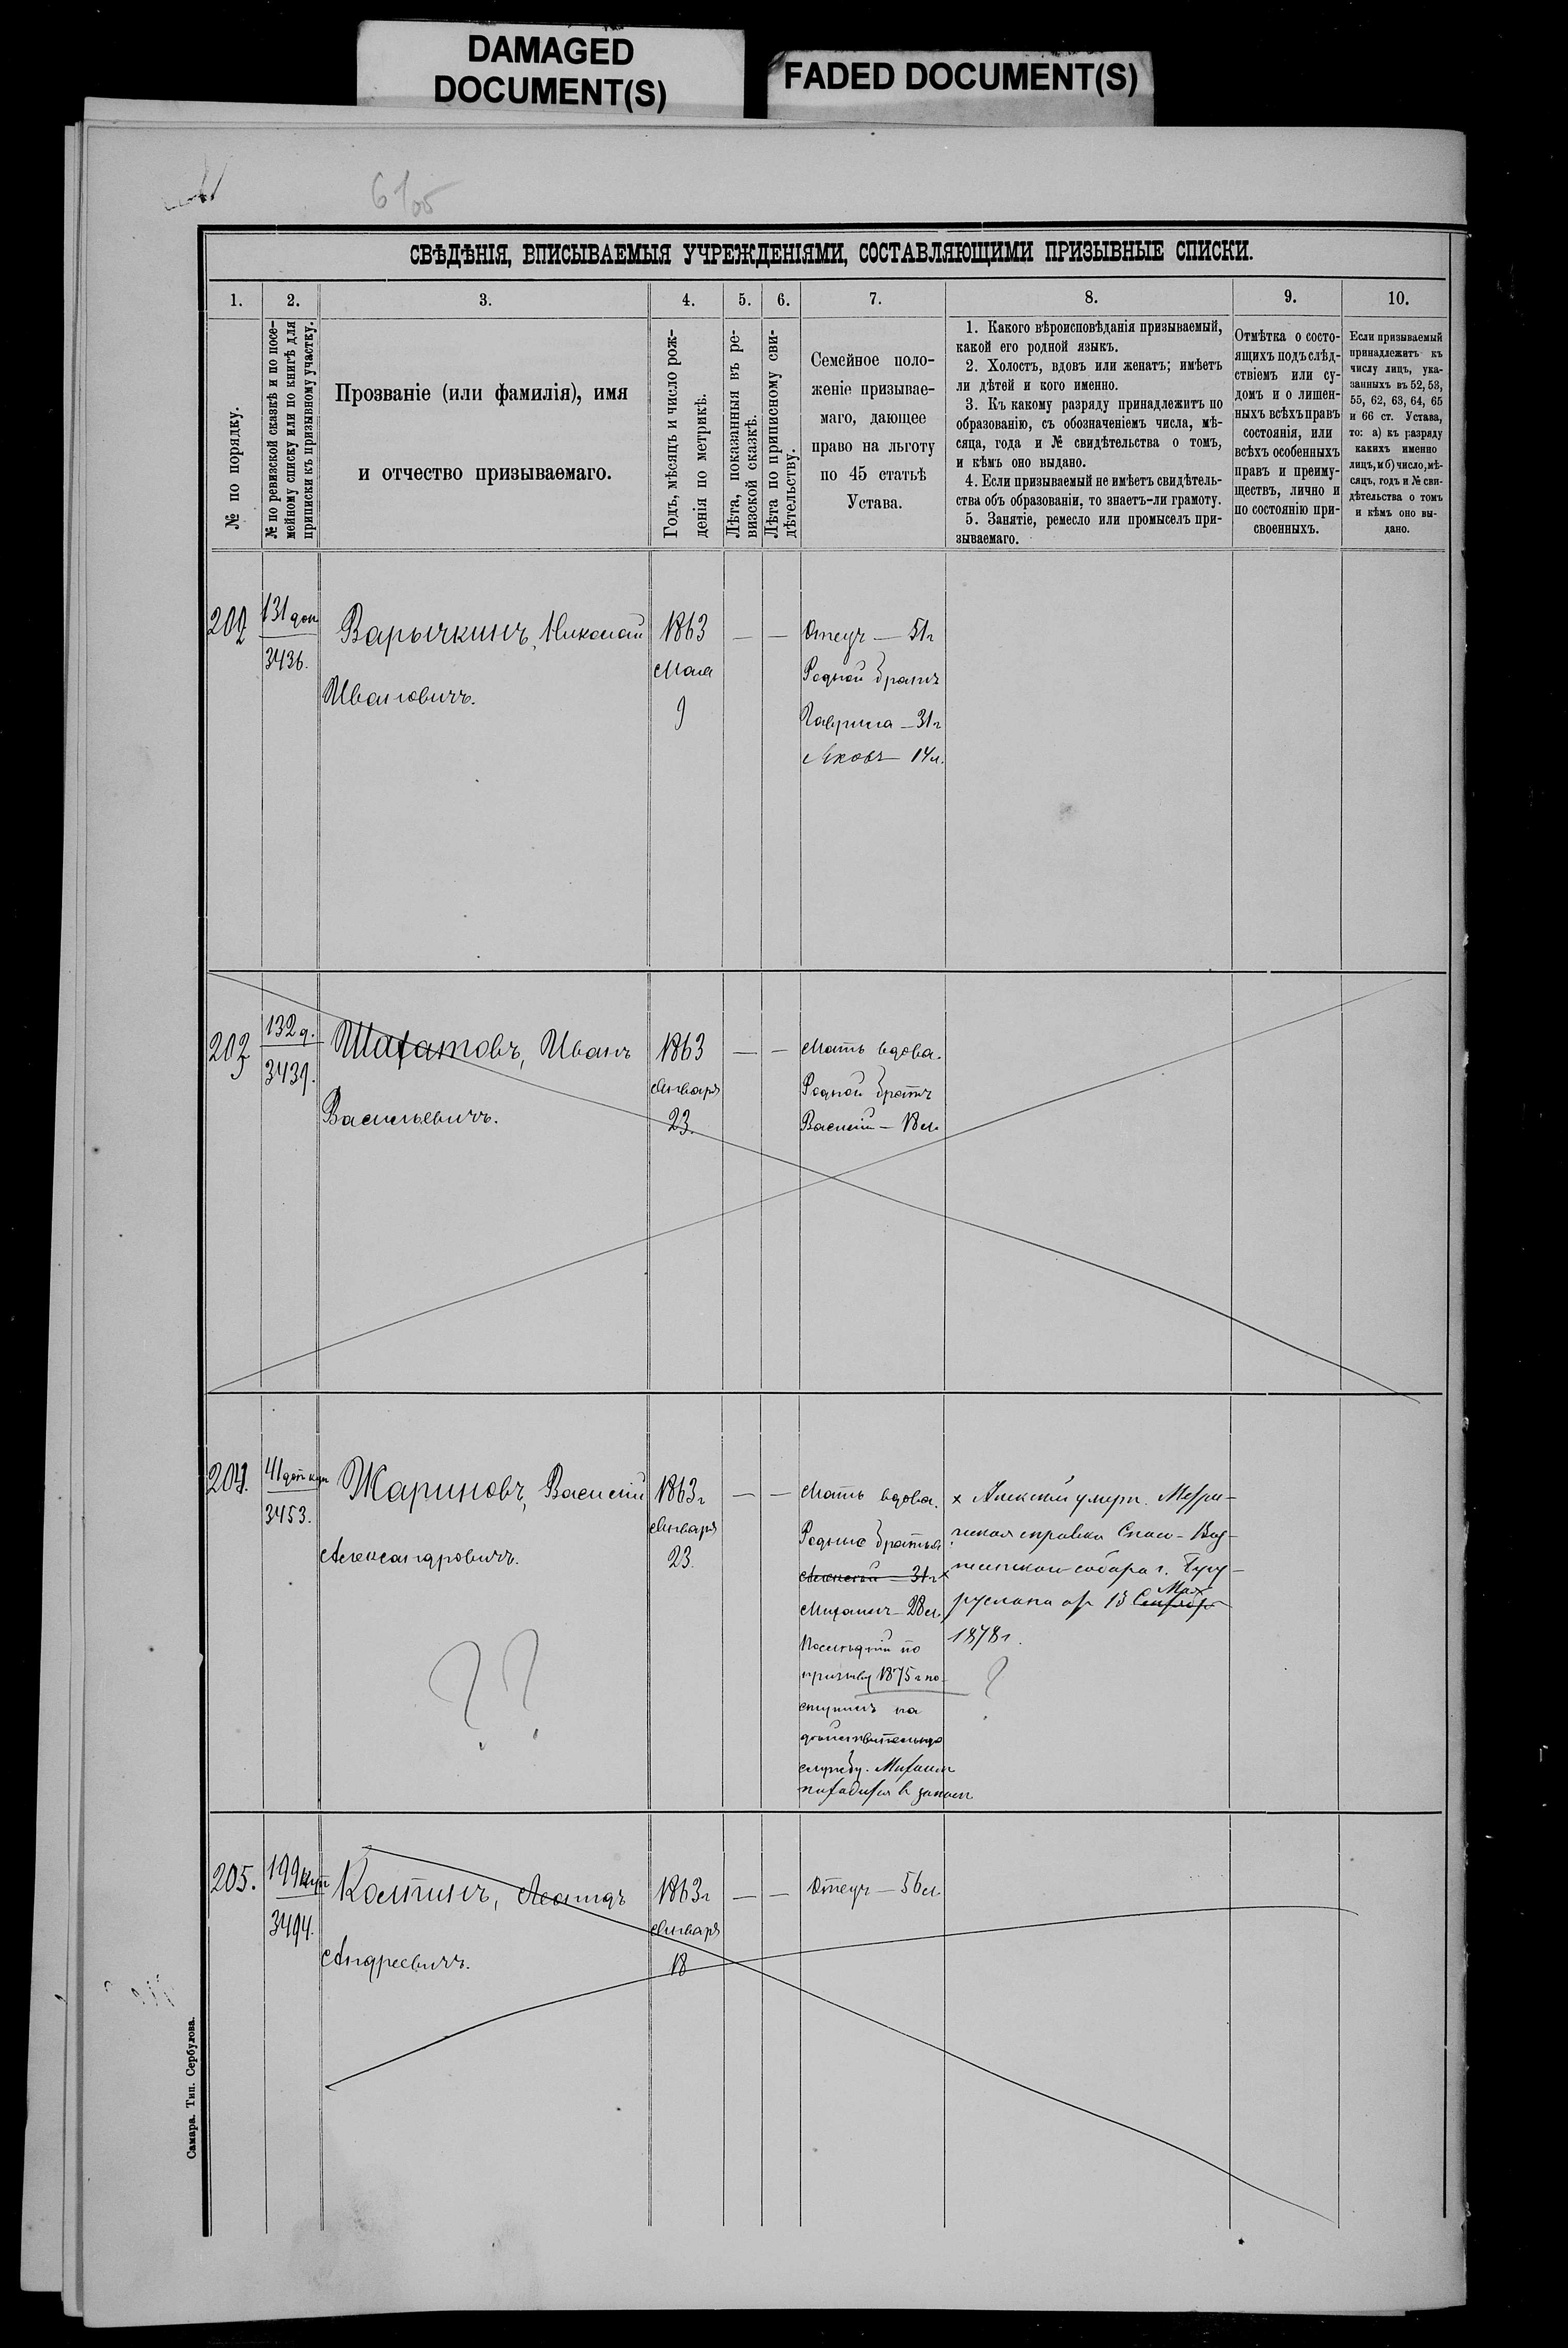 DAMAGED
DOCUMENT(S)
FADED DOCUMENT(S)
СВѢДѢНІЯ, ВПИСЫВАЕМЫЯ УЧРЕЖДЕНІЯМИ, СОСТАВЛЯЮЩИМИ ПРИЗЫВНЫЕ СПИСКИ.
1.
2.
3.
4.
5.
6.
7.
8.
9.
10.
№ по порядку.
№ по ревизской сказкѣ и по посе-
мейному списку или по книгѣ для
приписки къ призывному участку.
Прозваніе (или фамилія), имя
и отчество призываемаго.
Годъ, мѣсяцъ и число рож-
денія по метрикѣ.
Лѣта, показанныя въ ре-
визской сказкѣ.
Лѣта по приписному сви-
дѣтельству.
Семейное поло-
женіе призывае-
маго, дающее
право на льготу
по 45 статьѣ
Устава.
1. Какого вѣроисповѣданія призываемый,
какой его родной языкъ.
2. Холостъ, вдовъ или женатъ; имѣетъ
ли дѣтей и кого именно.
3. Къ какому разряду принадлежитъ по
образованію, съ обозначеніемъ числа, мѣ-
сяца, года и № свидѣтельства о томъ,
и кѣмъ оно выдано.
4. Если призываемый не имѣетъ свидѣтель-
ства объ образованіи, то знаетъ-ли грамоту.
5. Занятіе, ремесло или промыселъ при-
зываемаго.
Отмѣтка о состо-
ящихъ подъ слѣд-
ствіемъ или су-
домъ и о лишен-
ныхъ всѣхъ правъ
состоянія, или
всѣхъ особенныхъ
правъ и преиму-
ществъ, лично и
по состоянію при-
своенныхъ.
Если призываемый
принадлежитъ къ
числу лицъ, ука-
занныхъ въ 52, 53,
55, 62, 63, 64, 65
и 66 ст. Устава,
то: а) къ разряду
какихъ именно
лицъ, и б) число, мѣ-
сяцъ, годъ и № сви-
дѣтельства о томъ
и кѣмъ оно вы-
дано.
202
131 доп
3436.
Варычкинъ, Николай
Ивановичъ.
1863
Мая
9
— —
Отецъ — 51 г
Родной братъ
Гаврила — 31 г
Яковъ — 14 л.
203
132 д.
3439.
Шахатовъ, Иванъ
Васильевичъ.
1863
Января
23.
— —
Мать вдова.
Родной братъ
Василій — 18 л.
204.
41 доп куп
3453.
Жариновъ, Василій
Александровичъ.
1863 г
Января
23.
— —
Мать вдова.
Родные братья
Алексѣй — 31 г x
Михаилъ — 28 л.
Послѣдній по
призыву 1875 г по-
ступилъ на
дѣйствительную
службу. Михаилъ
находится в запасѣ
x Алексѣй умеръ. Метри-
ческая справка Спасо-Воз-
собора г. Бугу-
руслана от 13 Сентября
Мая
1878 г.
?
? ?
205.
199 куп
3494.
Колпинъ, Леонидъ
Андреевичъ.
1863 г
Января
18
— —
Отецъ — 56 л.
Самара. Тип. Сербулова.